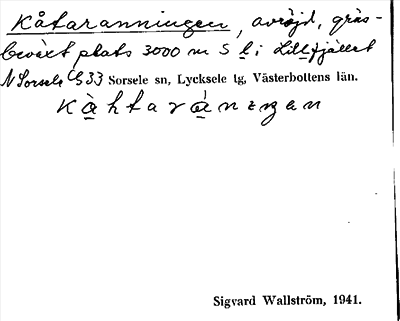 Kåtaranningen, avröjd, gräs-
beväxt plats 3000 m S l. i Lillfjället
N Sorsele GS 33 Sorsele sn, Lycksele tg, Västerbottens län.
Kå̀htaràningen
Sigvard Wallström, 1941.